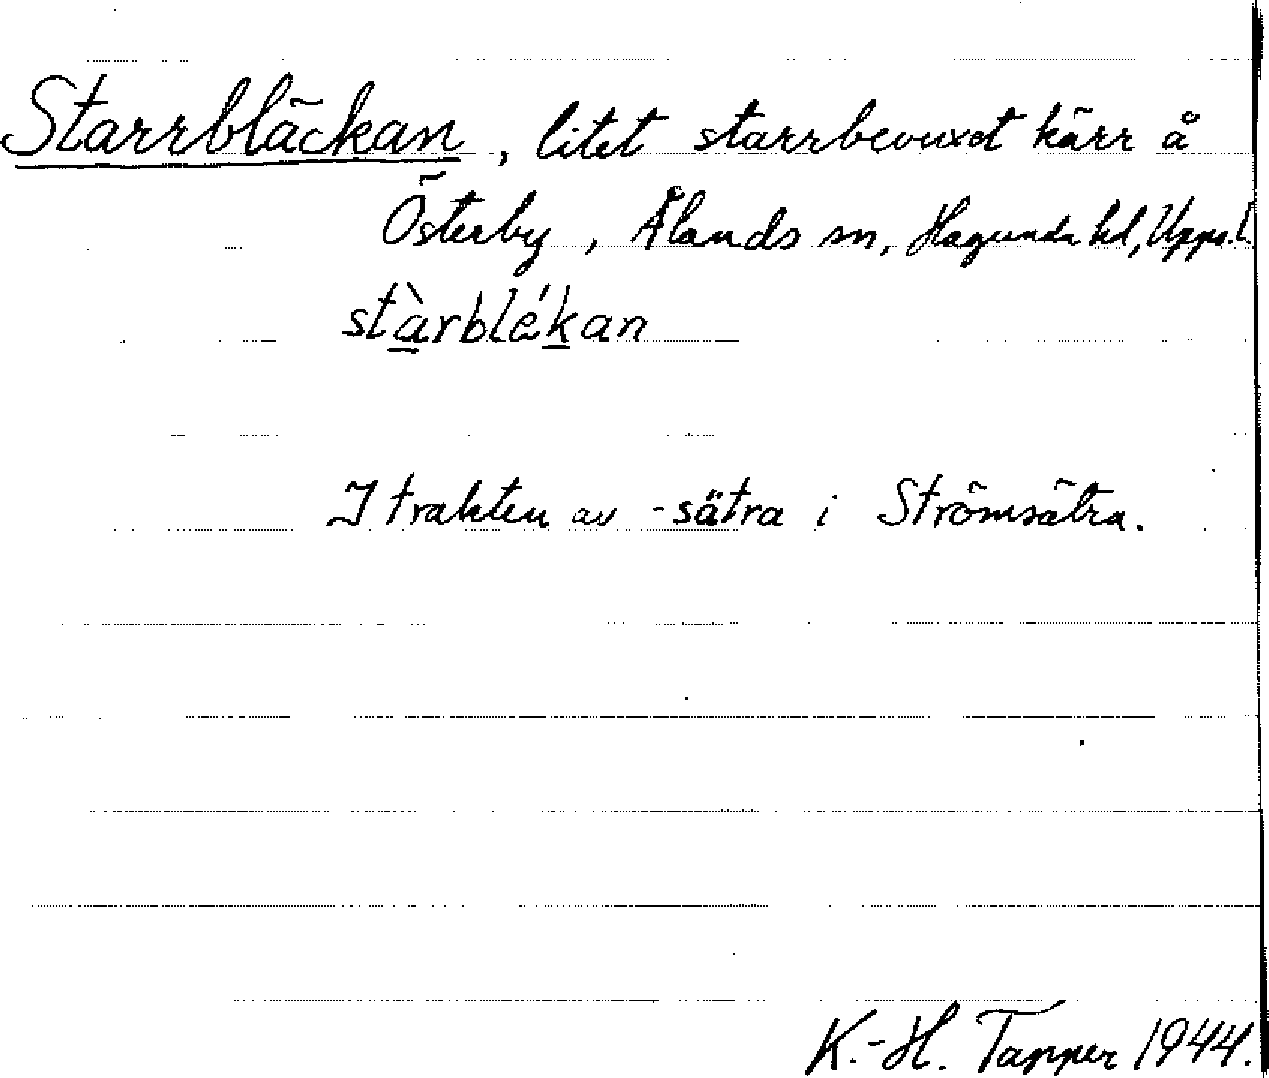 Starrbläckan, litet starrbevuxet kärr å
Österby, Ålands sn, Hagunda hd, Upps. l.
stàrblékan
I trakten av -sätra i Strömsätra.
K.-H. Tapper 1944.